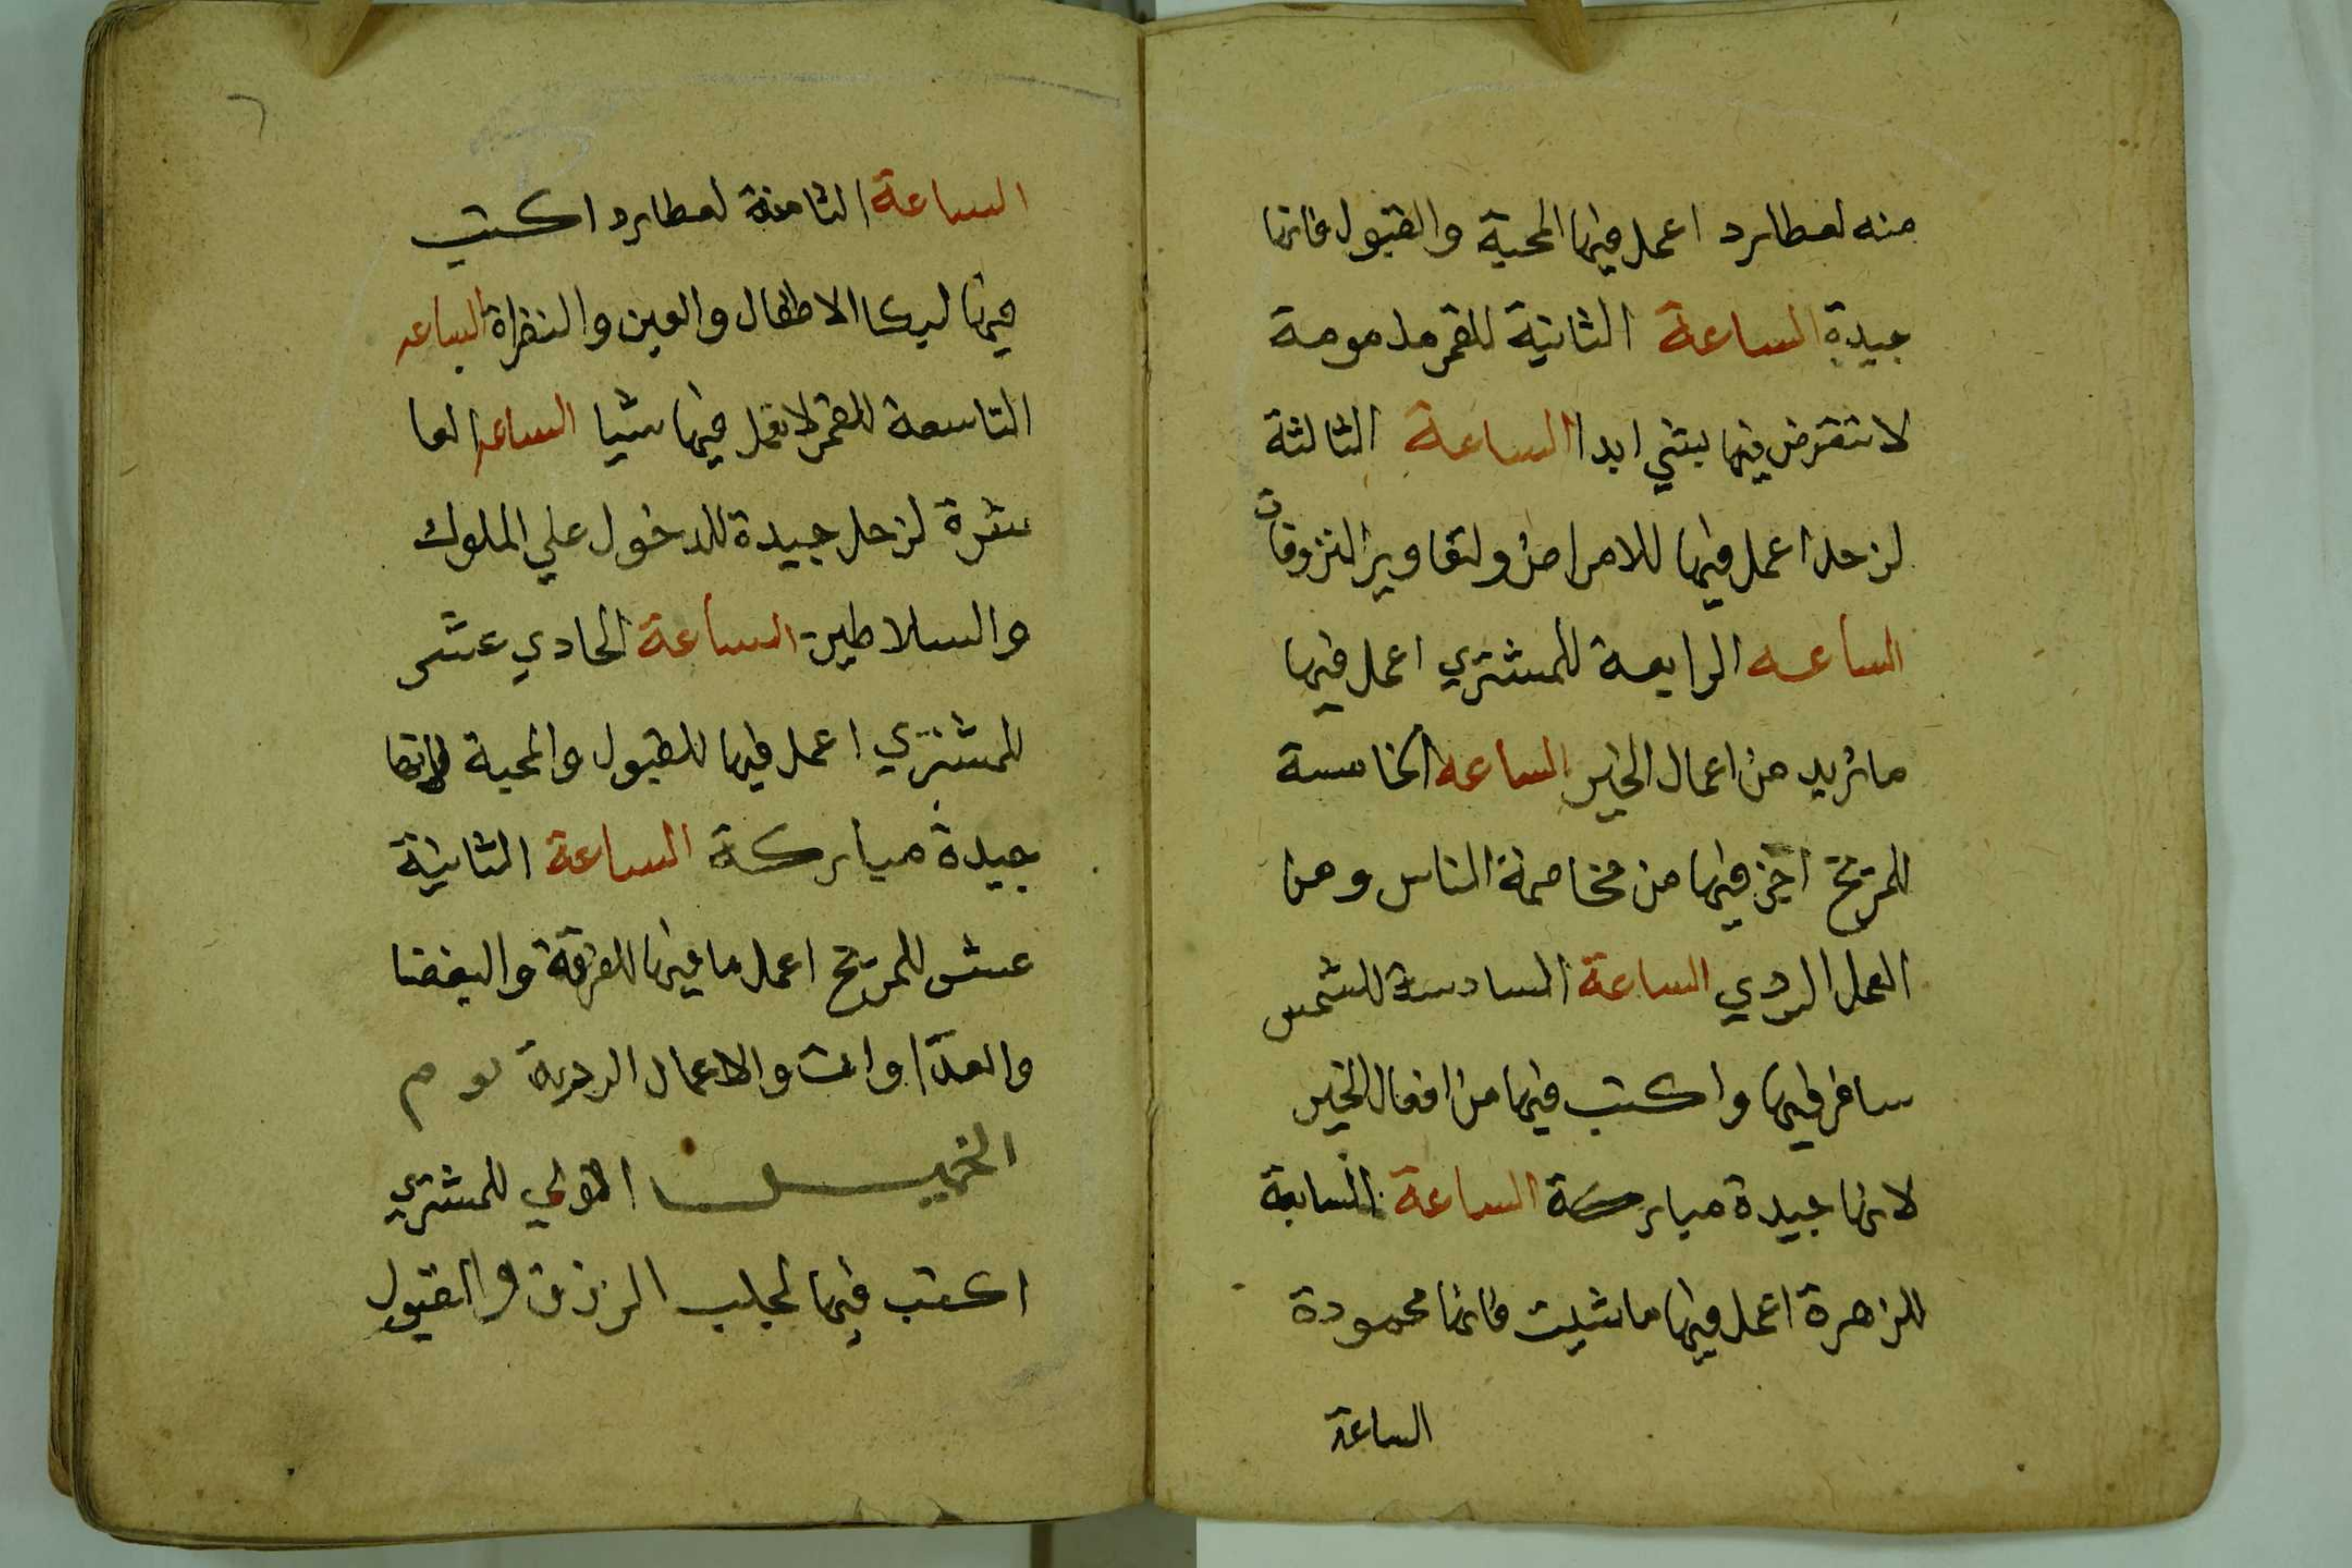 منه لعطارد اعمل فيها المحبة والقبول فانها
جيدة الساعة الثانية للقمر مذمومة
لا تتعرض فيها بشي ابدا الساعة الثالثة
لزحل اعمل فيها للامراض ولتقاوير النزوفات
الساعه الرابعة للمشتري اعمل فيها
ما تريد من اعمال الخير الساعه الخامسة
للمريخ احترز فيها من مخاصمة الناس ومن
العمل الردي الساعة السادسة للشمس
سافر فيها واكتب فيها من افعال الخير
لانها جيدة مباركة الساعة السابعة
للزهرة اعمل فيها ما شيت فانها محمودة
الساعة
٦
الساعة الثامنة لعطارد اكتب
فيها لبكا الاطفال والعين والنظراة الساعه
التاسعة للقمر لا تعمل فيها شيا الساعة العا
شرة لزحل جيدة للدخول علي الملوك
والسلاطين الساعة الحادي عشر
للمشتري اعمل فيها للقبول والمحبة فانها
جيدة مباركة الساعة الثانية
عشر للمريخ اعمل ما فيها للفرقة والبغضا
والعداوات والاعمال الردية يوم
الخميس الاولي للمشتري
اكتب فيها لجلب الرزق والقبول